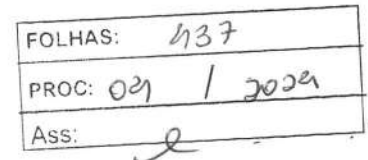 FOLHAS: 437
PROC: 04 / 2024
Ass: